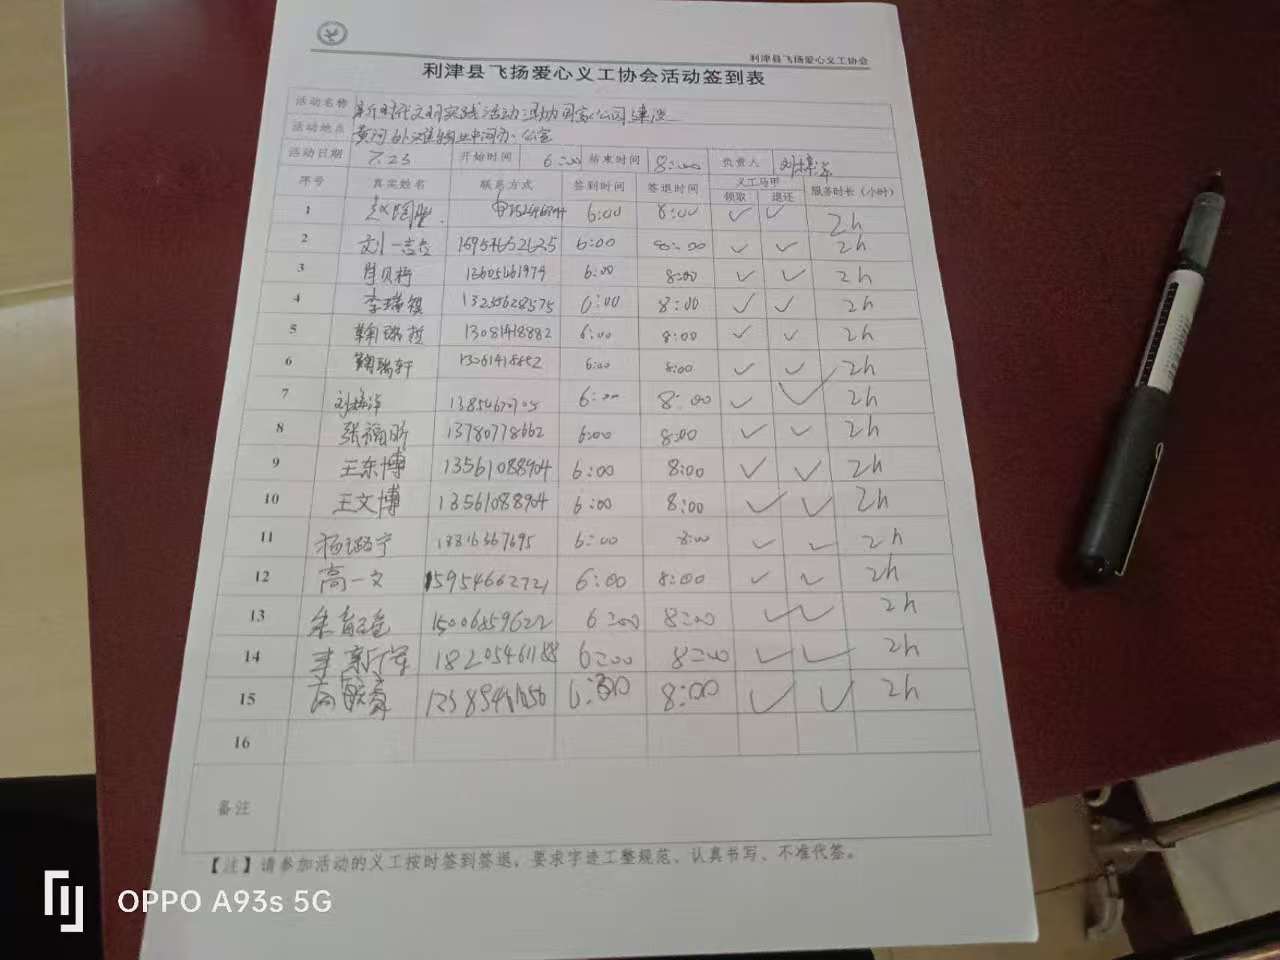 利津县飞扬爱心义工协会
利津县飞扬爱心义工协会活动签到表
活动名称 新时代文明实践活动 助力国家公园建设
活动地点 黄河 中河办公室
活动日期 7.23 开始时间 6:00 结束时间 8:00 负责人
序号 真实姓名 联系方式 签到时间 签退时间 义工马甲 服务时长（小时）
领取 退还
1 6:00 8:00 ✓ ✓ 2h
2 刘一 15954652635 6:00 8:00 ✓ ✓ 2h
3 13605461974 6:00 8:00 ✓ ✓ 2h
4 李瑾祺 13250628575 6:00 8:00 ✓ ✓ 2h
5 鞠 哲 13081418882 6:00 8:00 ✓ ✓ 2h
6 鞠 轩 6:00 8:00 ✓ ✓ 2h
7 6:00 8:00 ✓ ✓ 2h
8 张福昕 13780778662 6:00 8:00 ✓ ✓ 2h
9 王东博 13561088904 6:00 8:00 ✓ ✓ 2h
10 王文博 13561088904 6:00 8:00 ✓ ✓ 2h
11 杨璐宁 6:00 8:00 ✓ ✓ 2h
12 高一文 15954662721 6:00 8:00 ✓ ✓ 2h
13 15006859622 6:00 8:00 ✓ ✓ 2h
14 李新 18205461188 6:00 8:00 ✓ ✓ 2h
15 高 6:00 8:00 ✓ ✓ 2h
16
备注
【注】请参加活动的义工按时签到签退，要求字迹工整规范、认真书写、不准代签。
OPPO A93s 5G